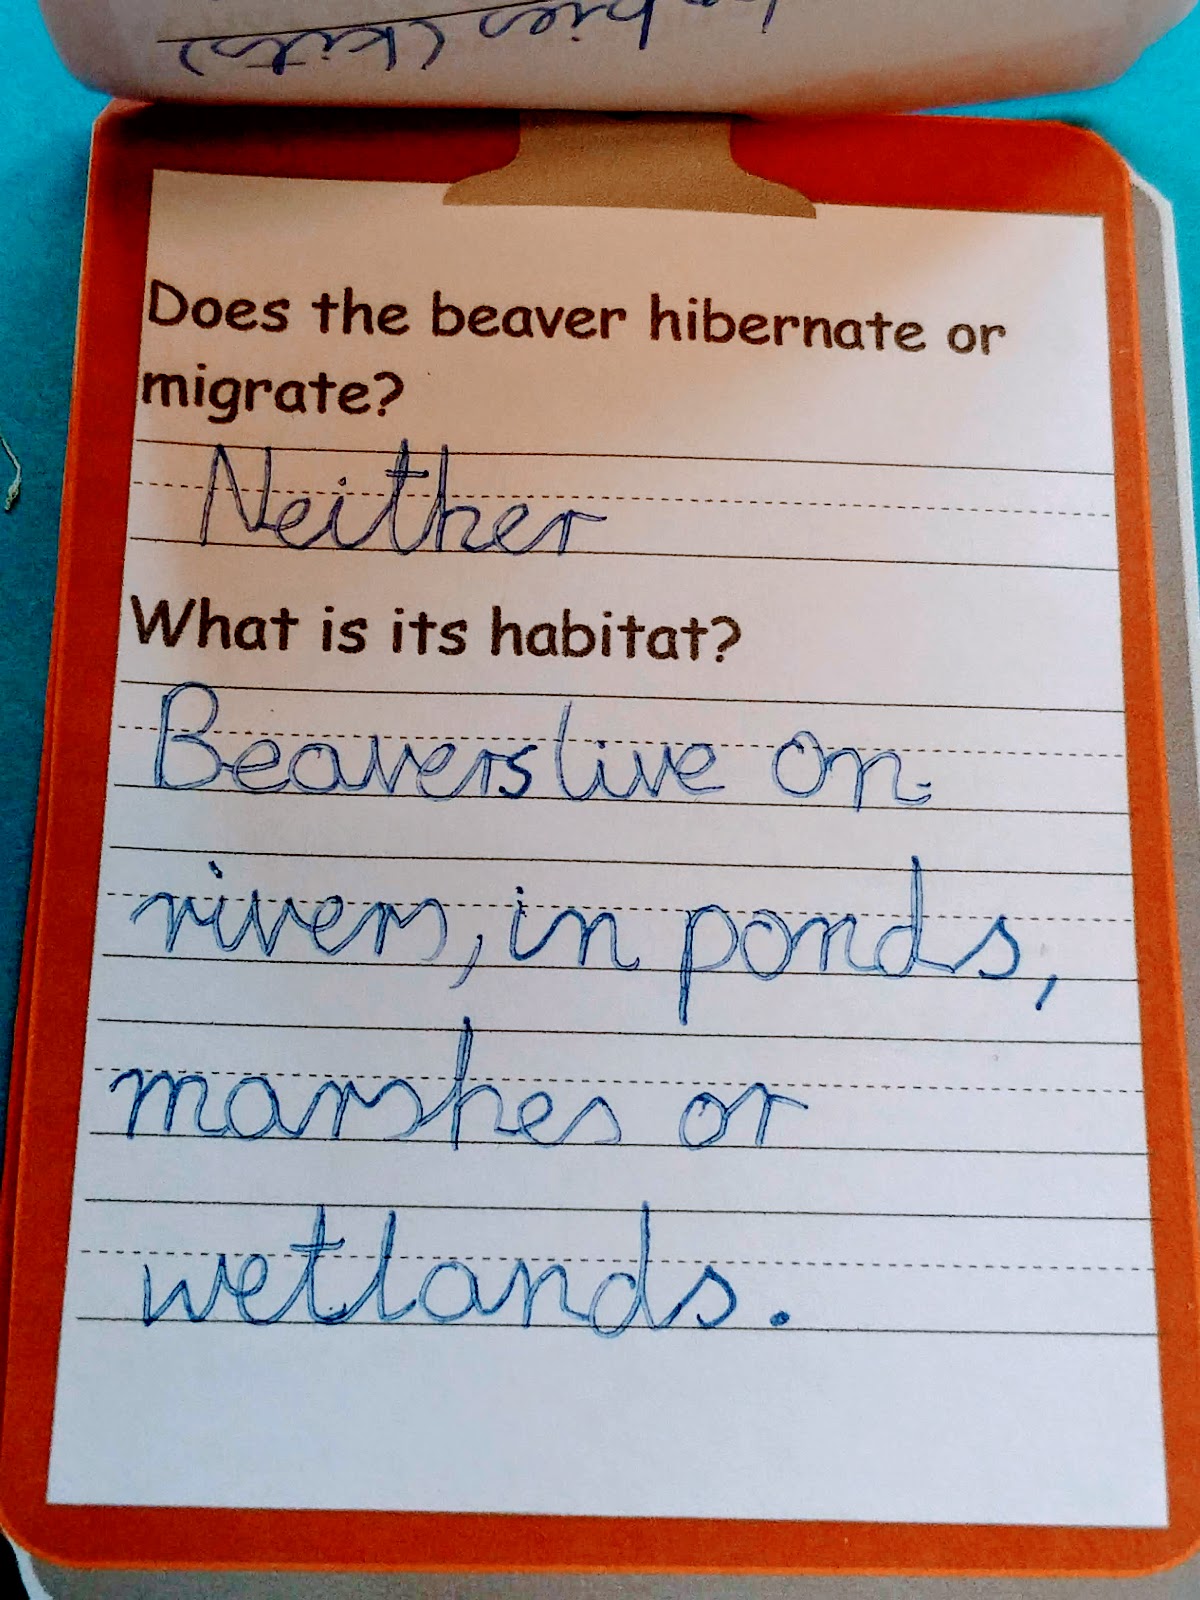 babies (kits)
Does the beaver hibernate or
migrate?
Neither
What is its habitat?
Beavers live on
rivers, in ponds,
marshes or
wetlands.